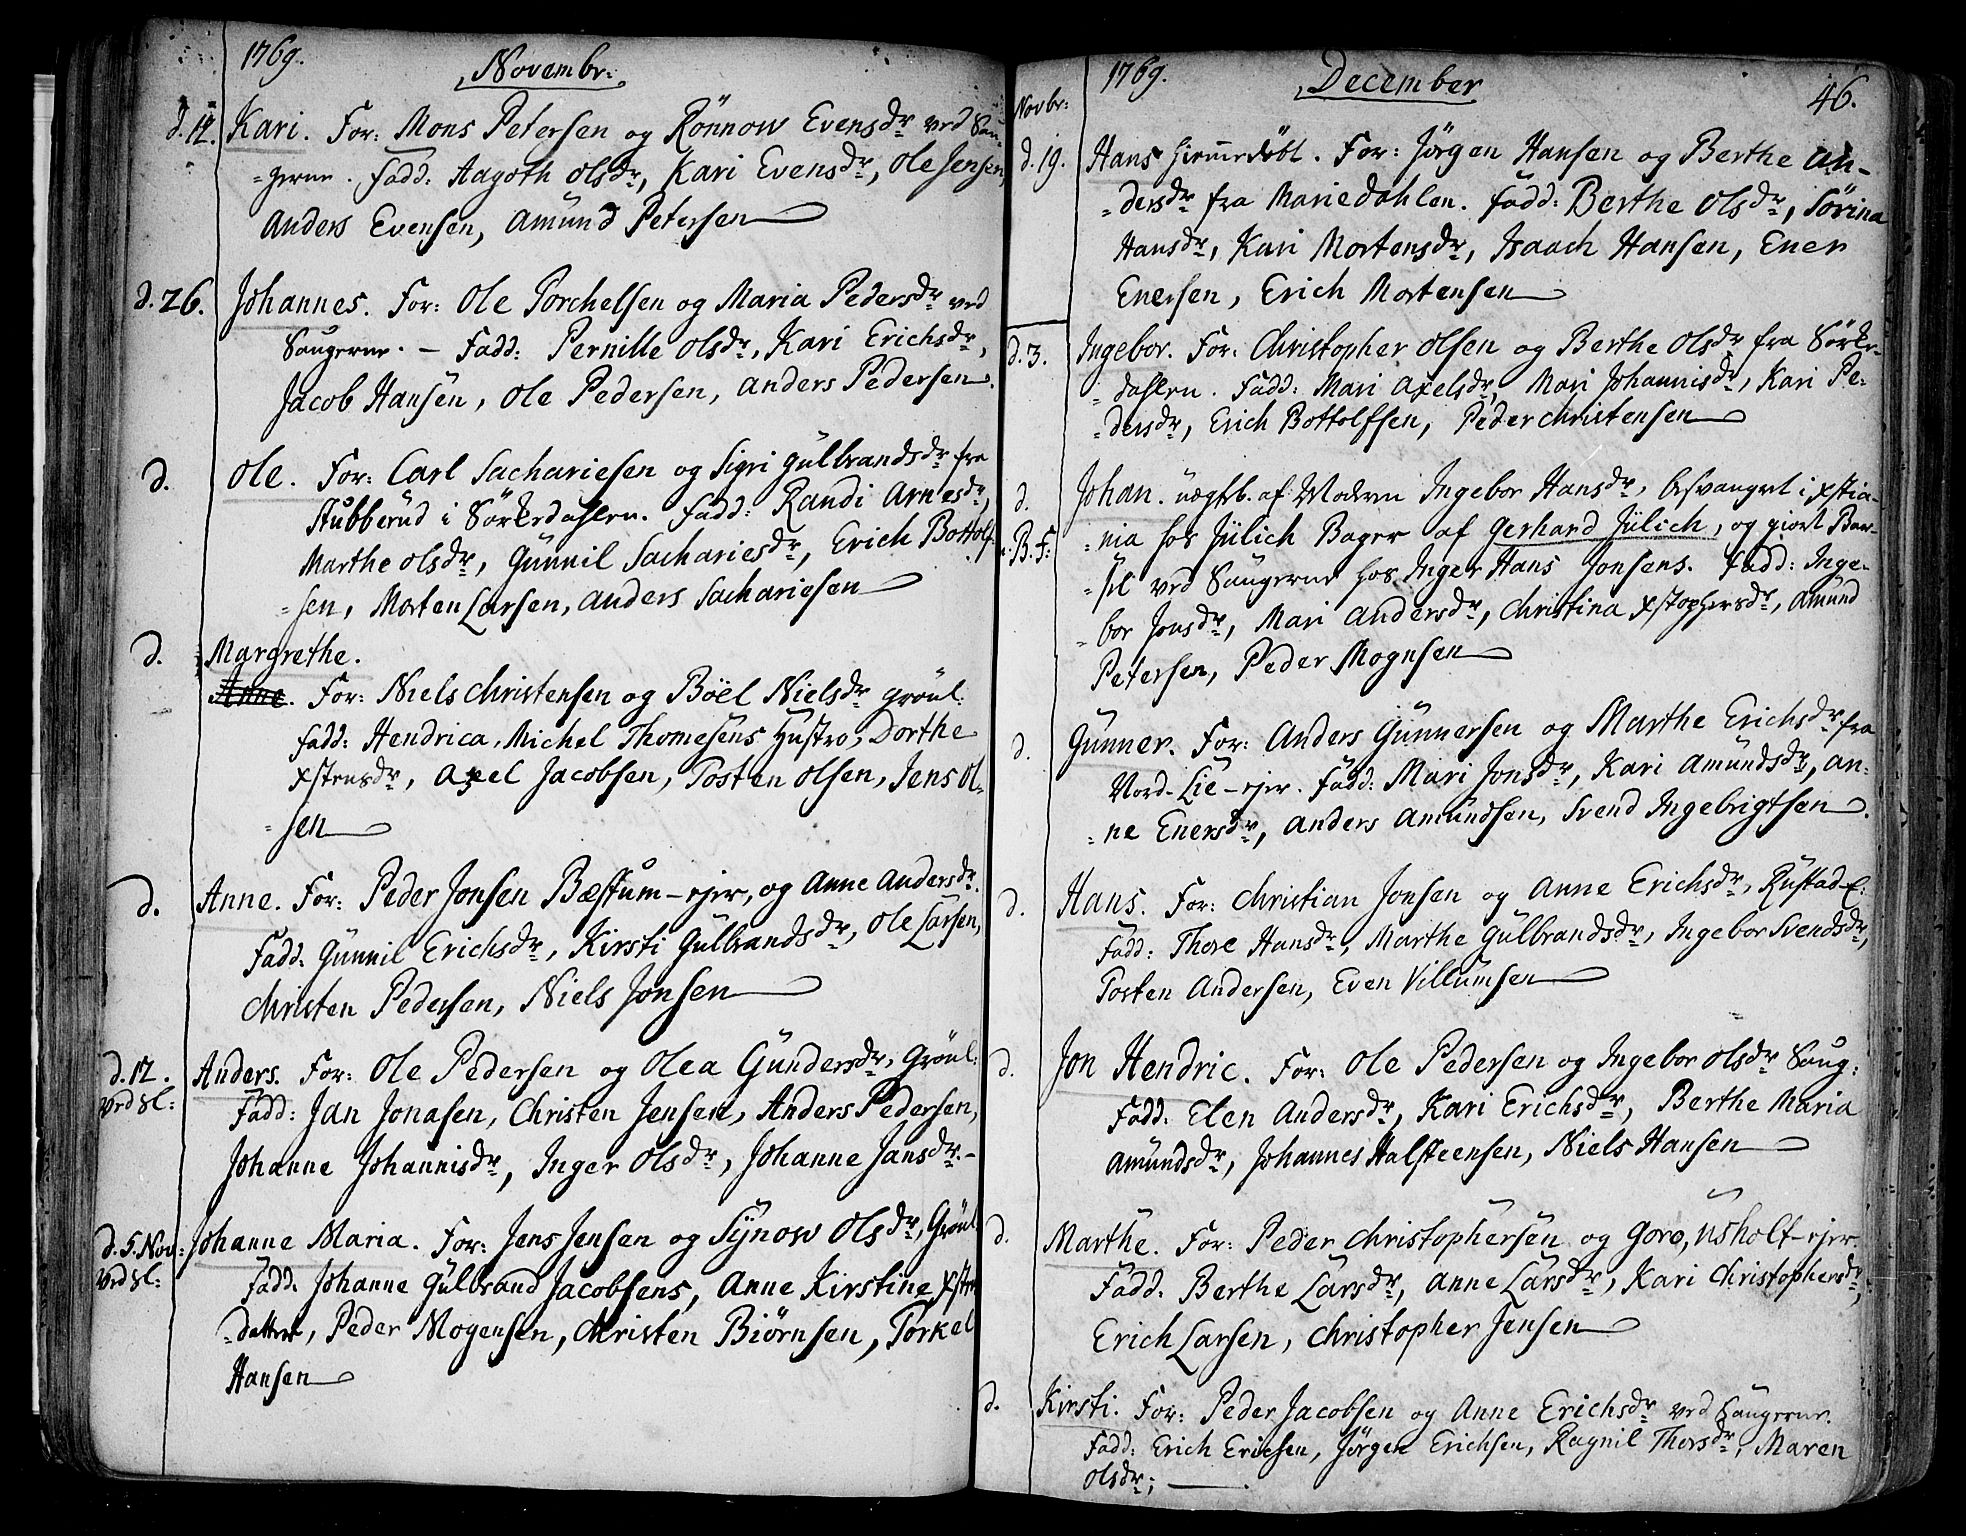 1769.
Novembr:
d. 12. Kari. For: Mons Petersen og Rönnow Evensdr ved Sau-
-gerne. Fadd: Aagoth Olsdr, Kari Evensdr, Ole Jensen,
Anders Evensen, Amund Petersen
d. 26. Johannes. For: Ole Torchelsen og Maria Pedersdr ved
Saugerne. – Fadd: Pernille Olsdr, Kari Erichsdr,
Jacob Hansen, Ole Pedersen, Anders Pedersen.
d. Ole. For: Carl Sachariesen og Sigri Gulbrandsdr fra
Stubberud i Sörkedahlen. Fadd: Randi Arnesdr,
Marthe Olsdr, Gunnil Sachariesdr, Erich Bottolf-
-sen, Morten Larsen, Anders Sachariesen
d. Margrethe.
Anne. For: Niels Christensen og Böel Nielsdr Grönl:
Fadd: Hendrica, Michel Thomesens Hustro, Dorthe
Xstensdr, Axel Jacobsen, Tosten Olsen, Jens Ol-
-sen
d. Anne. For: Peder Jonsen Bæstum-ejer, og Anne Andersdr.
Fadd: Gunnil Erichsdr, Kirsti Gulbrandsdr, Ole Larsen,
Christen Pedersen, Niels Jonsen
d. 12. Anders. For: Ole Pedersen og Olea Gundersdr, Grönl:
ved Sl: Fadd: Jan Jonasen, Christen Jensen, Anders Pedersen,
Johanne Johannisdr, Inger Olsdr, Johanne Jansdr. –
d. 5. Nov: Johanne Maria. For: Jens Jensen og Synow Olsdr, Grönl
ved Sl: Fadd: Johanne Gulbrand Jacobsens, Anne Kirstine Xsten
-datter, Peder Mogensen, Christen Biörnsen, Torkel
Hansen
1769.
December
46.
Novbr:
d. 19. Hans hiemmedöbt. For: Jörgen Hansen og Berthe An-
-dersdr fra Mariedahlen. Fadd: Berthe Olsdr, Sörina
Hansdr, Kari Mortensdr, Isaach Hansen, Ener
Enersen, Erich Mortensen
d. 3. Ingebor. For: Christopher Olsen og Berthe Olsdr fra Sörke-
-dahlen. Fadd: Mari Axelsdr, Mari Johannisdr, Kari Pe-
-dersdr, Erich Bottolfsen, Peder Christensen
d. Johan. uægtb. af Moderen Ingebor Hansdr, besvangret i Xstia-
B.F: -nia hos Jülich Bager af Gerhard Jülich, og giort Bar-
-sel ved Saugerne hos Inger Hans Jonsens. Fadd: Inge-
-bor Jonsdr, Mari Andersdr, Christina Xstophersdr, Amund
Petersen, Peder Mognsen
d. Gunner. For: Anders Gunnersen og Marthe Erichsdr fra
Nord-Lie-ejer. Fadd: Mari Jonsdr, Kari Amundsdr, An-
-ne Enersdr, Anders Amundsen, Svend Ingebrigtsen.
d. Hans. For: Christian Jonsen og Anne Erichsdr, Rustad-E:
Fadd: Thore Hansdr, Marthe Gulbrandsdr, Ingebor Svendsdr,
Tosten Andersen, Even Villumsen
d. Jon Hendric. For: Ole Pedersen og Ingebor Olsdr Saug:
Fadd. Elen Andersdr, Kari Erichsdr, Berthe Maria
Amundsdr, Johannes Halsteensen, Niels Hansen
d. Marthe. For: Peder Christophersen og Goro, Usholt-ejer
Fadd. Berthe Larsdr, Anne Larsdr, Kari Christophersdr,
Erich Larsen, Christopher Jensen
d. Kirsti. For: Peder Jacobsen og Anne Erichsdr ved Saugerne.
Fadd: Erich Ericsen, Jörgen Erichsen, Ragnil Thorsdr, Maren
Olsdr;